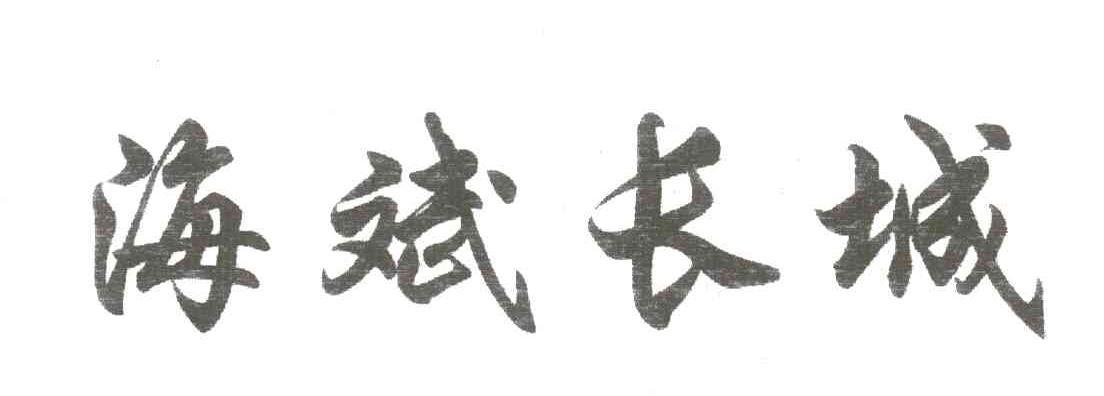 海斌长城